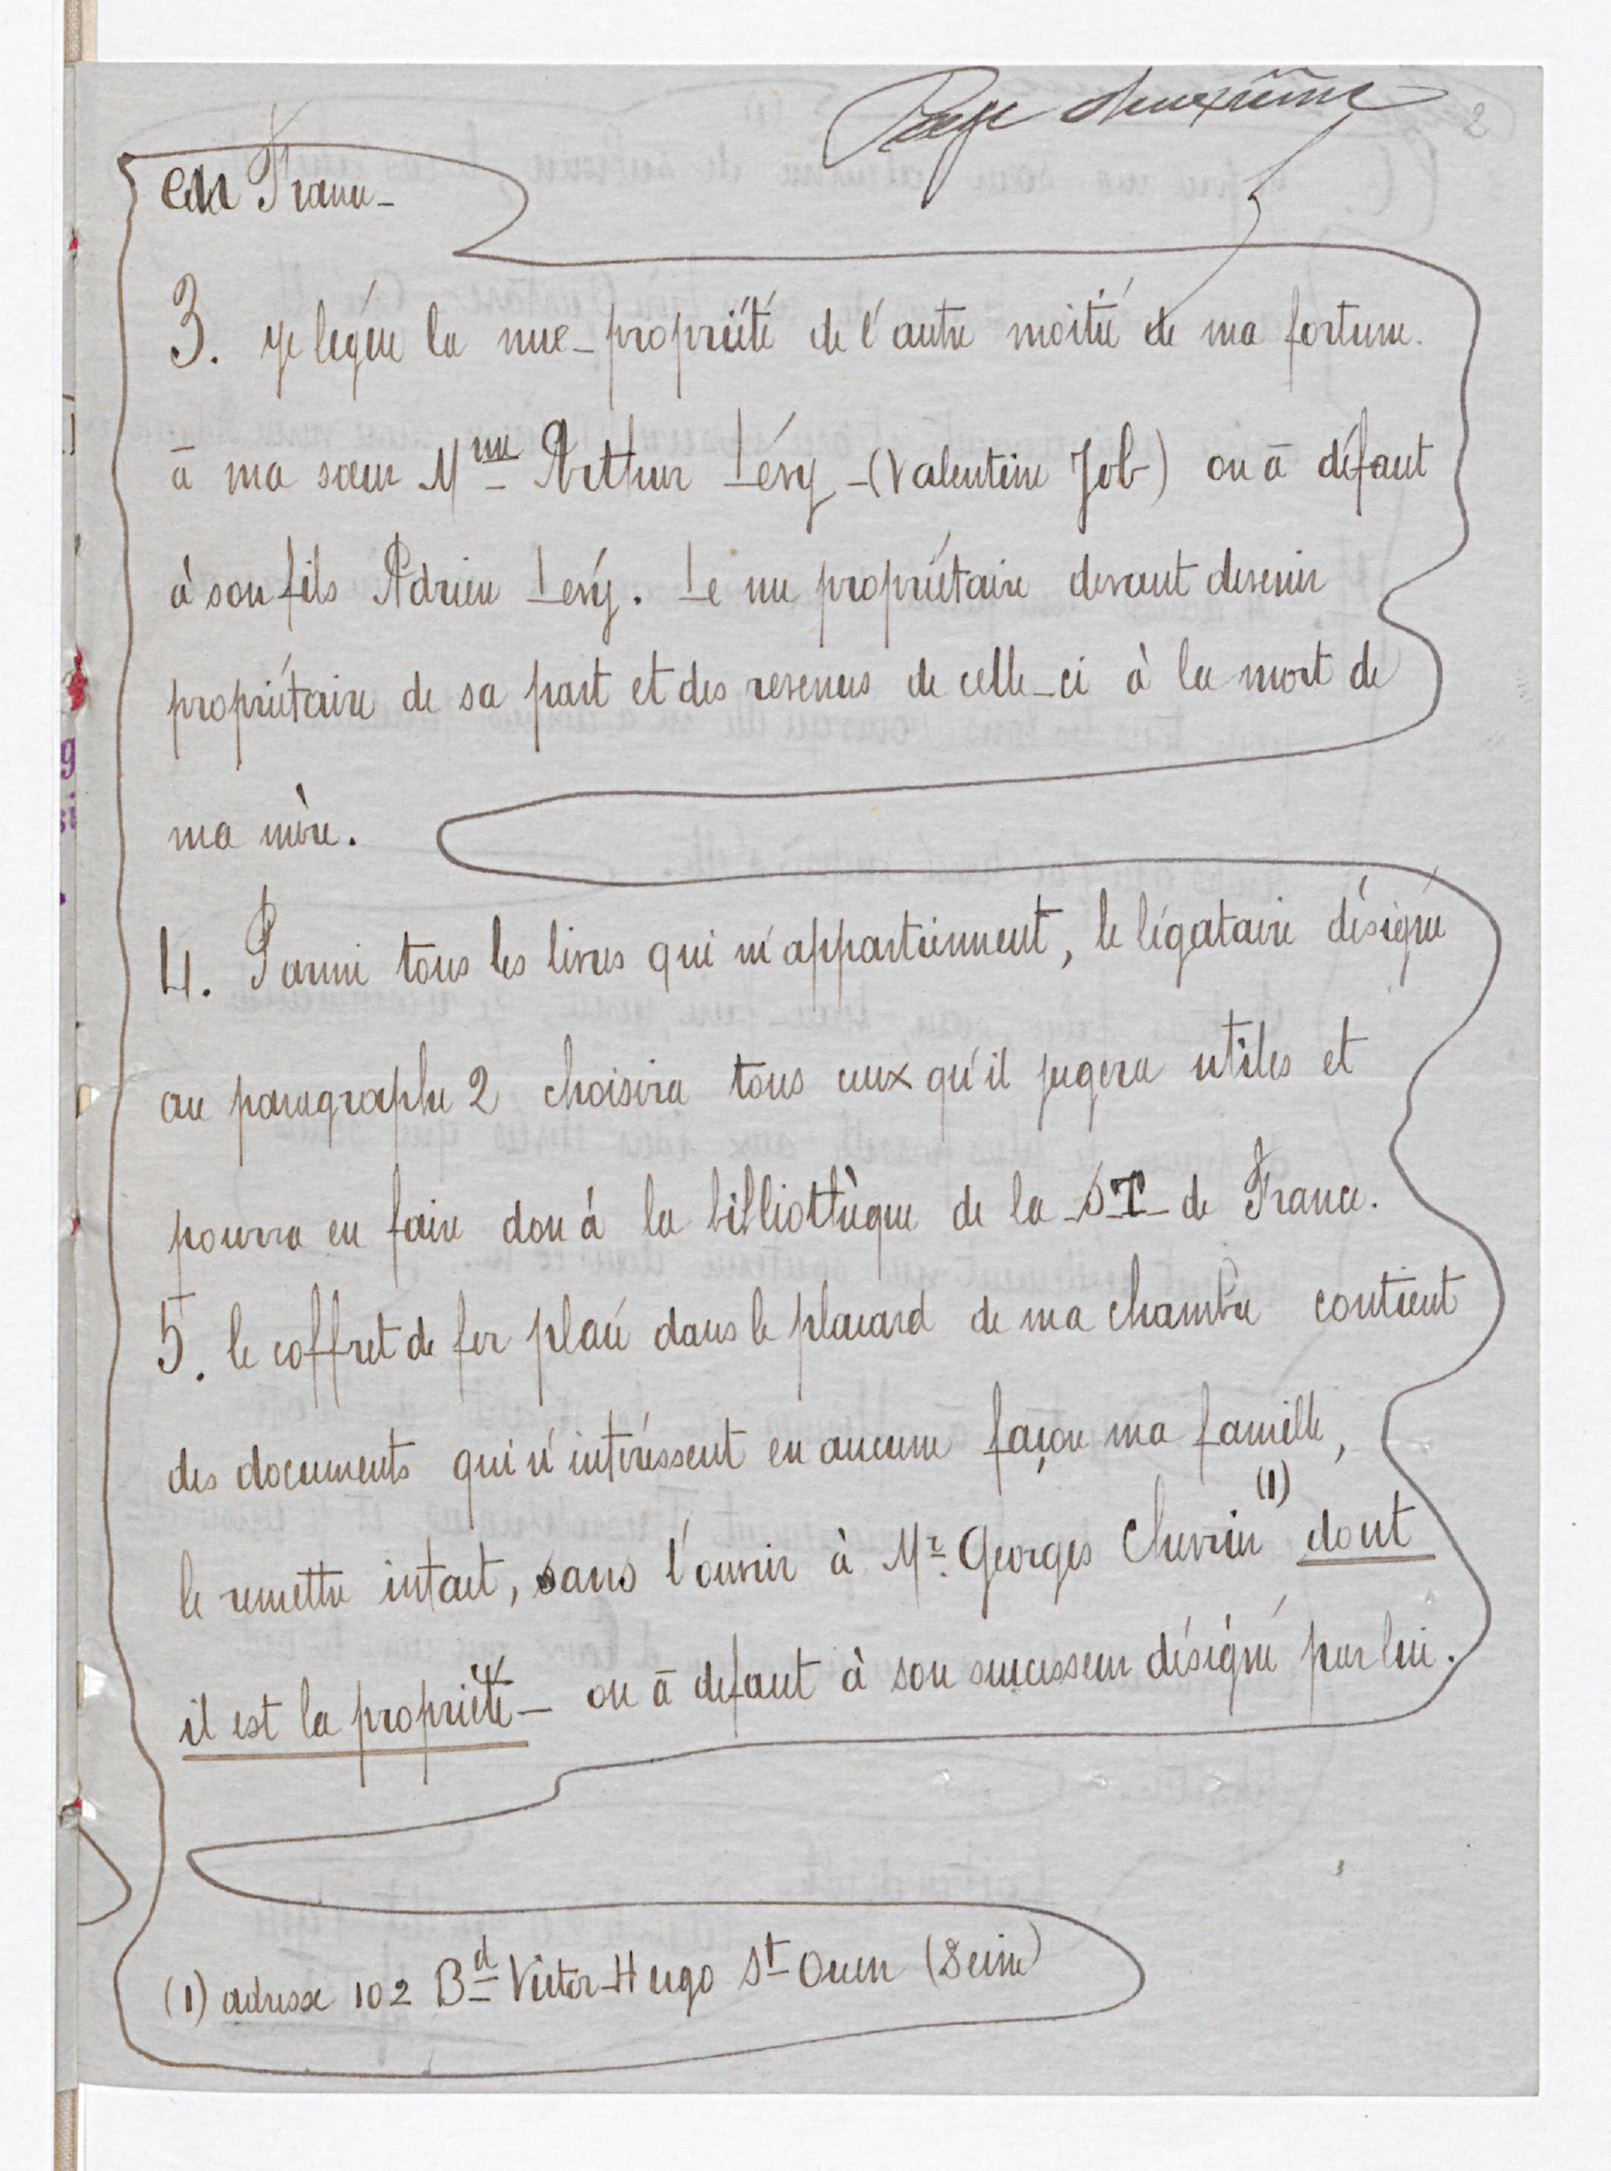 Page deuxième
2
en France_
3. Je lègue la nue_propriété de l'autre moitié de ma fortune.
à ma sœur Mme Arthur Lévy_(Valentine Job) ou à défaut
à son fils Adrien Levy. Le nu propriétaire devant devenir
propriétaire de sa part et des revenus de celle_ci à la mort de
ma mère.
4. Parmi tous les livres qui m'appartiennent, le légataire désigné
au paragraphe 2 choisira tous ceux qu'il jugera utiles et
pourra en faire don à la bibliothèque de la _ST_ de France.
5. le coffret de fer placé dans le placard de ma chambre contient
des documents qui n'intéressent en aucune façon ma famille,
le remettre intact, sans l'ouvrir à Mr. Georges Chevrier (1) dont
il est la propriété_ ou à defaut à son successeur désigné par lui.
(1) adresse 102 Bd Victor-Hugo St Ouen (Seine)